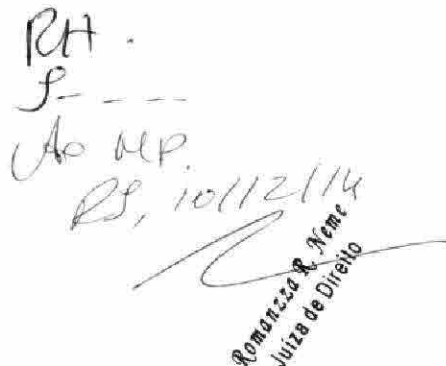 RH.
J - - - -
Ao MP.
RS, 10/12/14
Romanzza R. Neme
Juíza de Direito